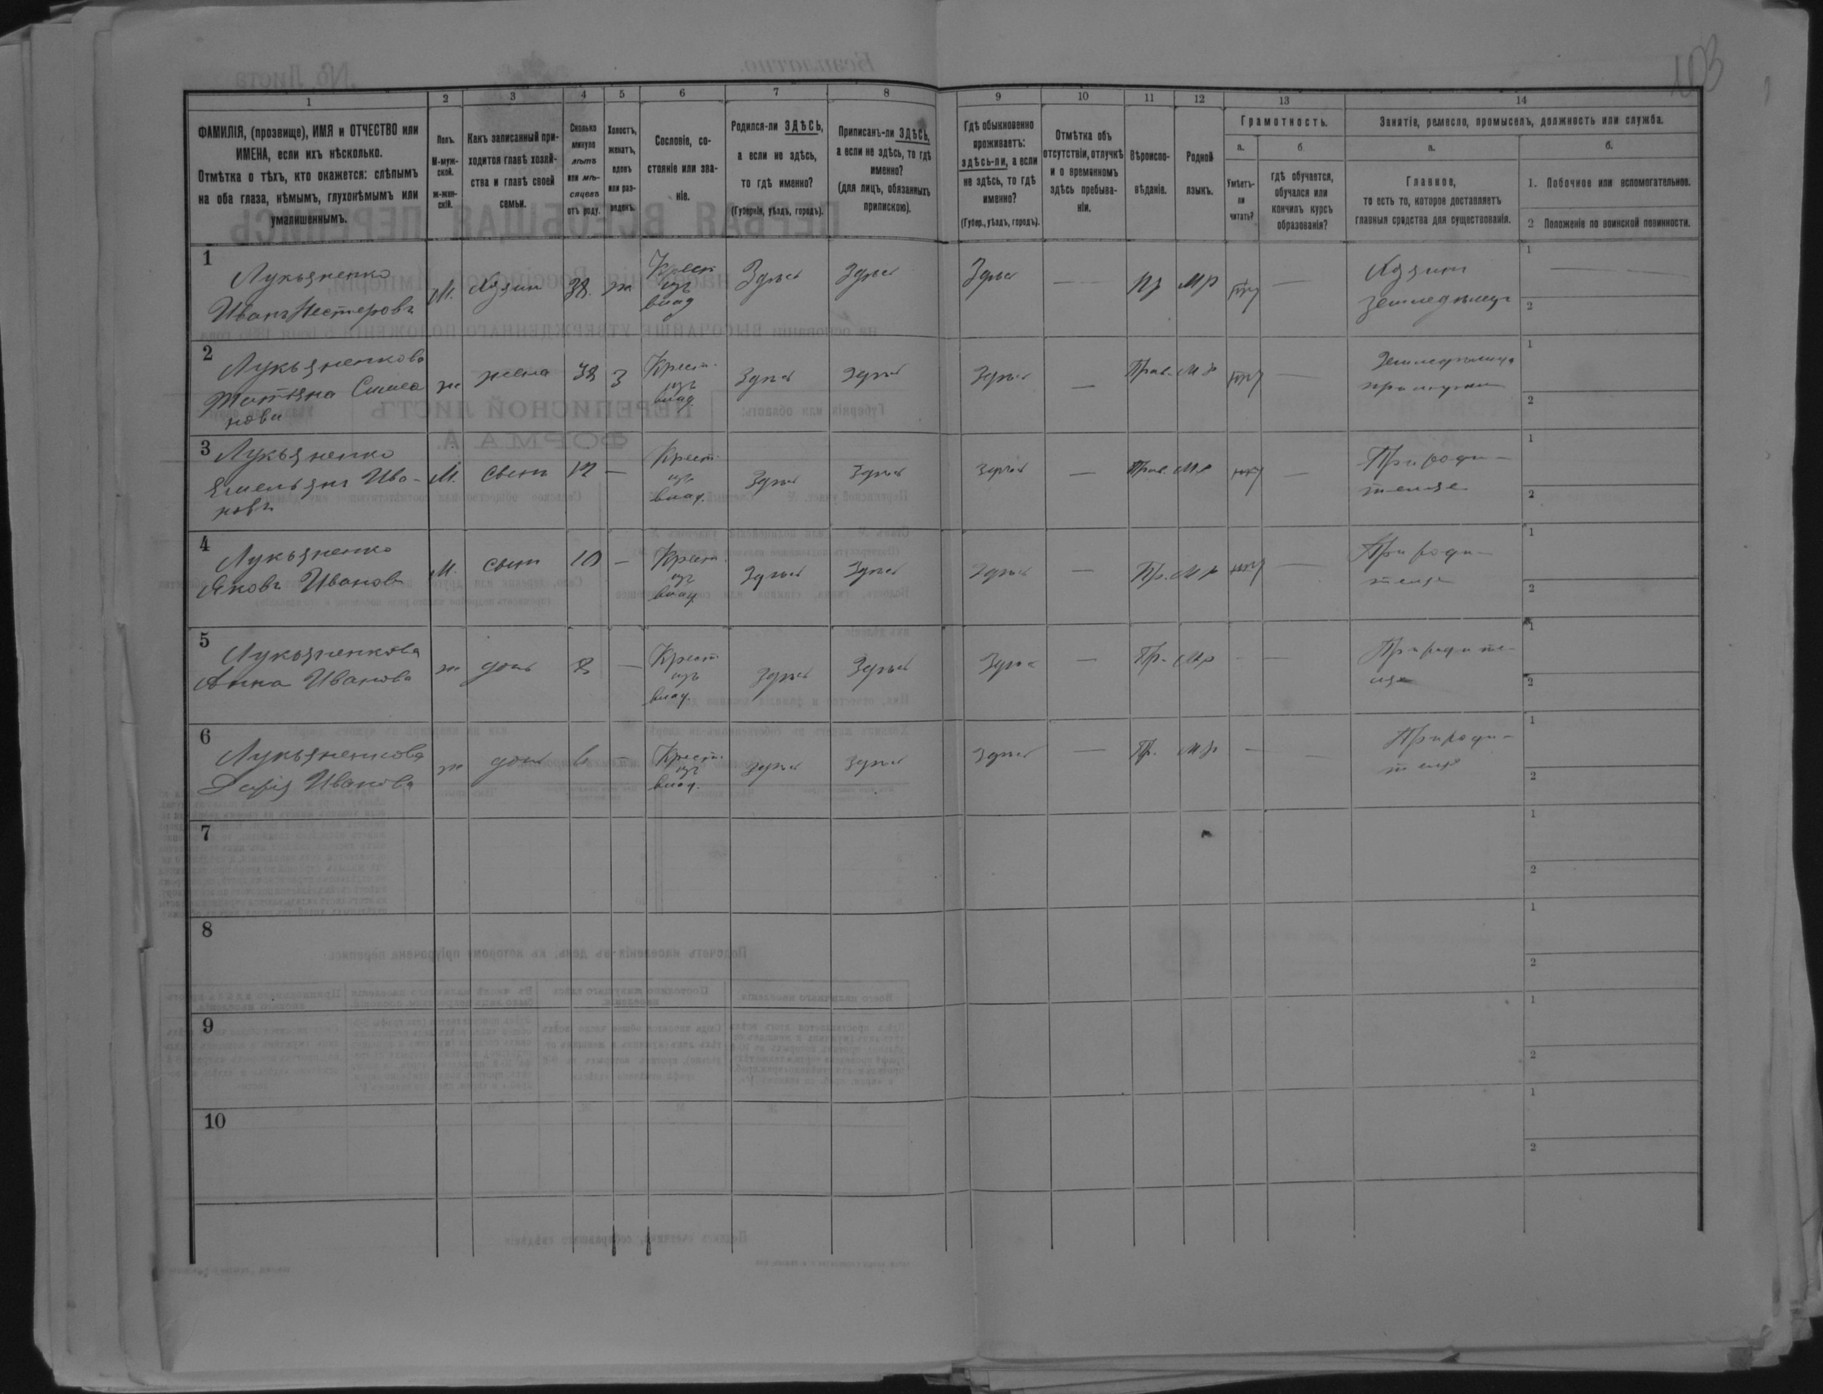 103
1 2 3 4 5 6 7 8 9 10 11 12 13 14
ФАМИЛІЯ, (прозвище), ИМЯ и ОТЧЕСТВО или
ИМЕНА, если ихъ нѣсколько.
Отмѣтка о тѣхъ, кто окажется: слѣпымъ
на оба глаза, нѣмымъ, глухонѣмымъ или
умалишеннымъ.
Полъ.
М-муж-
ской.
ж-жен-
скій.
Какъ записанный при-
ходится главѣ хозяй-
ства и главѣ своей
семьи.
Сколько
минуло
лѣтъ
или мѣ-
сяцевъ
отъ роду.
Холостъ,
женатъ,
вдовъ
или раз-
веденъ.
Сословіе, со-
стояніе или зва-
ніе.
Родился-ли ЗДѢСЬ,
а если не здѣсь,
то гдѣ именно?
(Губернія, уѣздъ, городъ).
Приписанъ-ли ЗДѢСЬ,
а если не здѣсь, то гдѣ
именно?
(для лицъ, обязанныхъ
припискою).
Гдѣ обыкновенно
проживаетъ:
здѣсь-ли, а если
не здѣсь, то гдѣ
именно?
(Губер., уѣздъ, городъ).
Отмѣтка объ
отсутствіи, отлучкѣ
и о временномъ
здѣсь пребыва-
ніи.
Вѣроиспо-
вѣданіе.
Родной
языкъ.
Грамотность.
а.
Умѣетъ-
ли
читать?
б.
гдѣ обучается,
обучался или
кончилъ курсъ
образованія?
Занятіе, ремесло, промыселъ, должность или служба.
а.
Главное,
то есть то, которое доставляетъ
главныя средства для существованія.
б.
1. Побочное или вспомогательное.
2 Положеніе по воинской повинности.
1
Лукьяненко
Иванъ Нестеровъ
М. Хозяин 38. ж
Крест
изъ
влад
Здѣсь Здѣсь Здѣсь — МР —
Хозяин
земледѣлец
1 —
2
2
Лукьяненкова
Татьяна
ж жена 38 З
Крест.
изъ
влад
Здѣсь Здѣсь Здѣсь — Прав. МР —
1
2
3
Лукьяненко
Емельян Ива-
новъ
М. сынъ 12 —
Крест.
изъ
влад.
Здѣсь Здѣсь Здѣсь — Прав. МР —
При роди-
теляхъ
1
2
4
Лукьяненко
Яковъ Иванов
М. сынъ 10 —
Крест.
изъ
влад
Здѣсь Здѣсь Здѣсь — Пр. МР —
При роди-
теляхъ
1
2
5
Лукьяненкова
Анна Иванова
ж дочь 8 —
Крест.
изъ
влад.
Здѣсь Здѣсь Здѣсь — Пр. МР - —
При родите-
ляхъ
1
2
6
Лукьяненкова
Дарія Иванова
ж дочь 6 —
Крест.
изъ
влад.
Здѣсь Здѣсь Здѣсь — Пр. МР — —
При роди-
теля
1
2
7
1
2
8
1
2
9
1
2
10
1
2